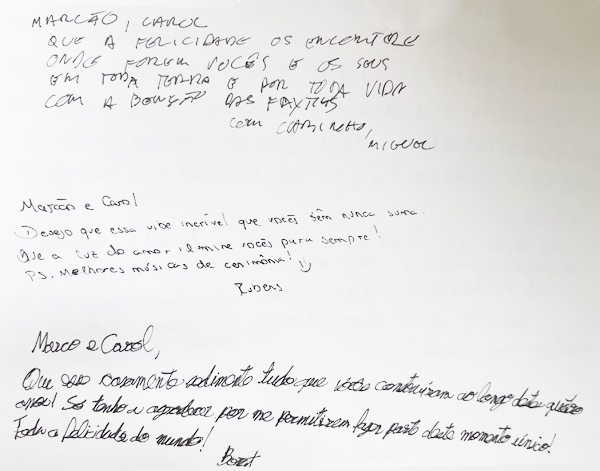 MARCÃO, CAROL
QUE A FELICIDADE OS ENCONTRE
ONDE FOREM VOCÊS E OS SEUS
EM TODA TERRA E POR TODA VIDA
COM A BENÇÃO DAS
COM CARINHO,
MIGUEL
Marcão e Carol
Desejo que essa vibe incrível que vocês têm nunca suma.
Que a luz do amor ilmine vocês para sempre!
PS. Melhores músicas de cerimônia!
Rubens
Marco e Carol,
Que esse casamento sedimente tudo que vocês construíram ao longo destes quatro
anos! Só tenho a agradecer por me permitirem fazer parte deste momento único!
Toda a felicidade do mundo!